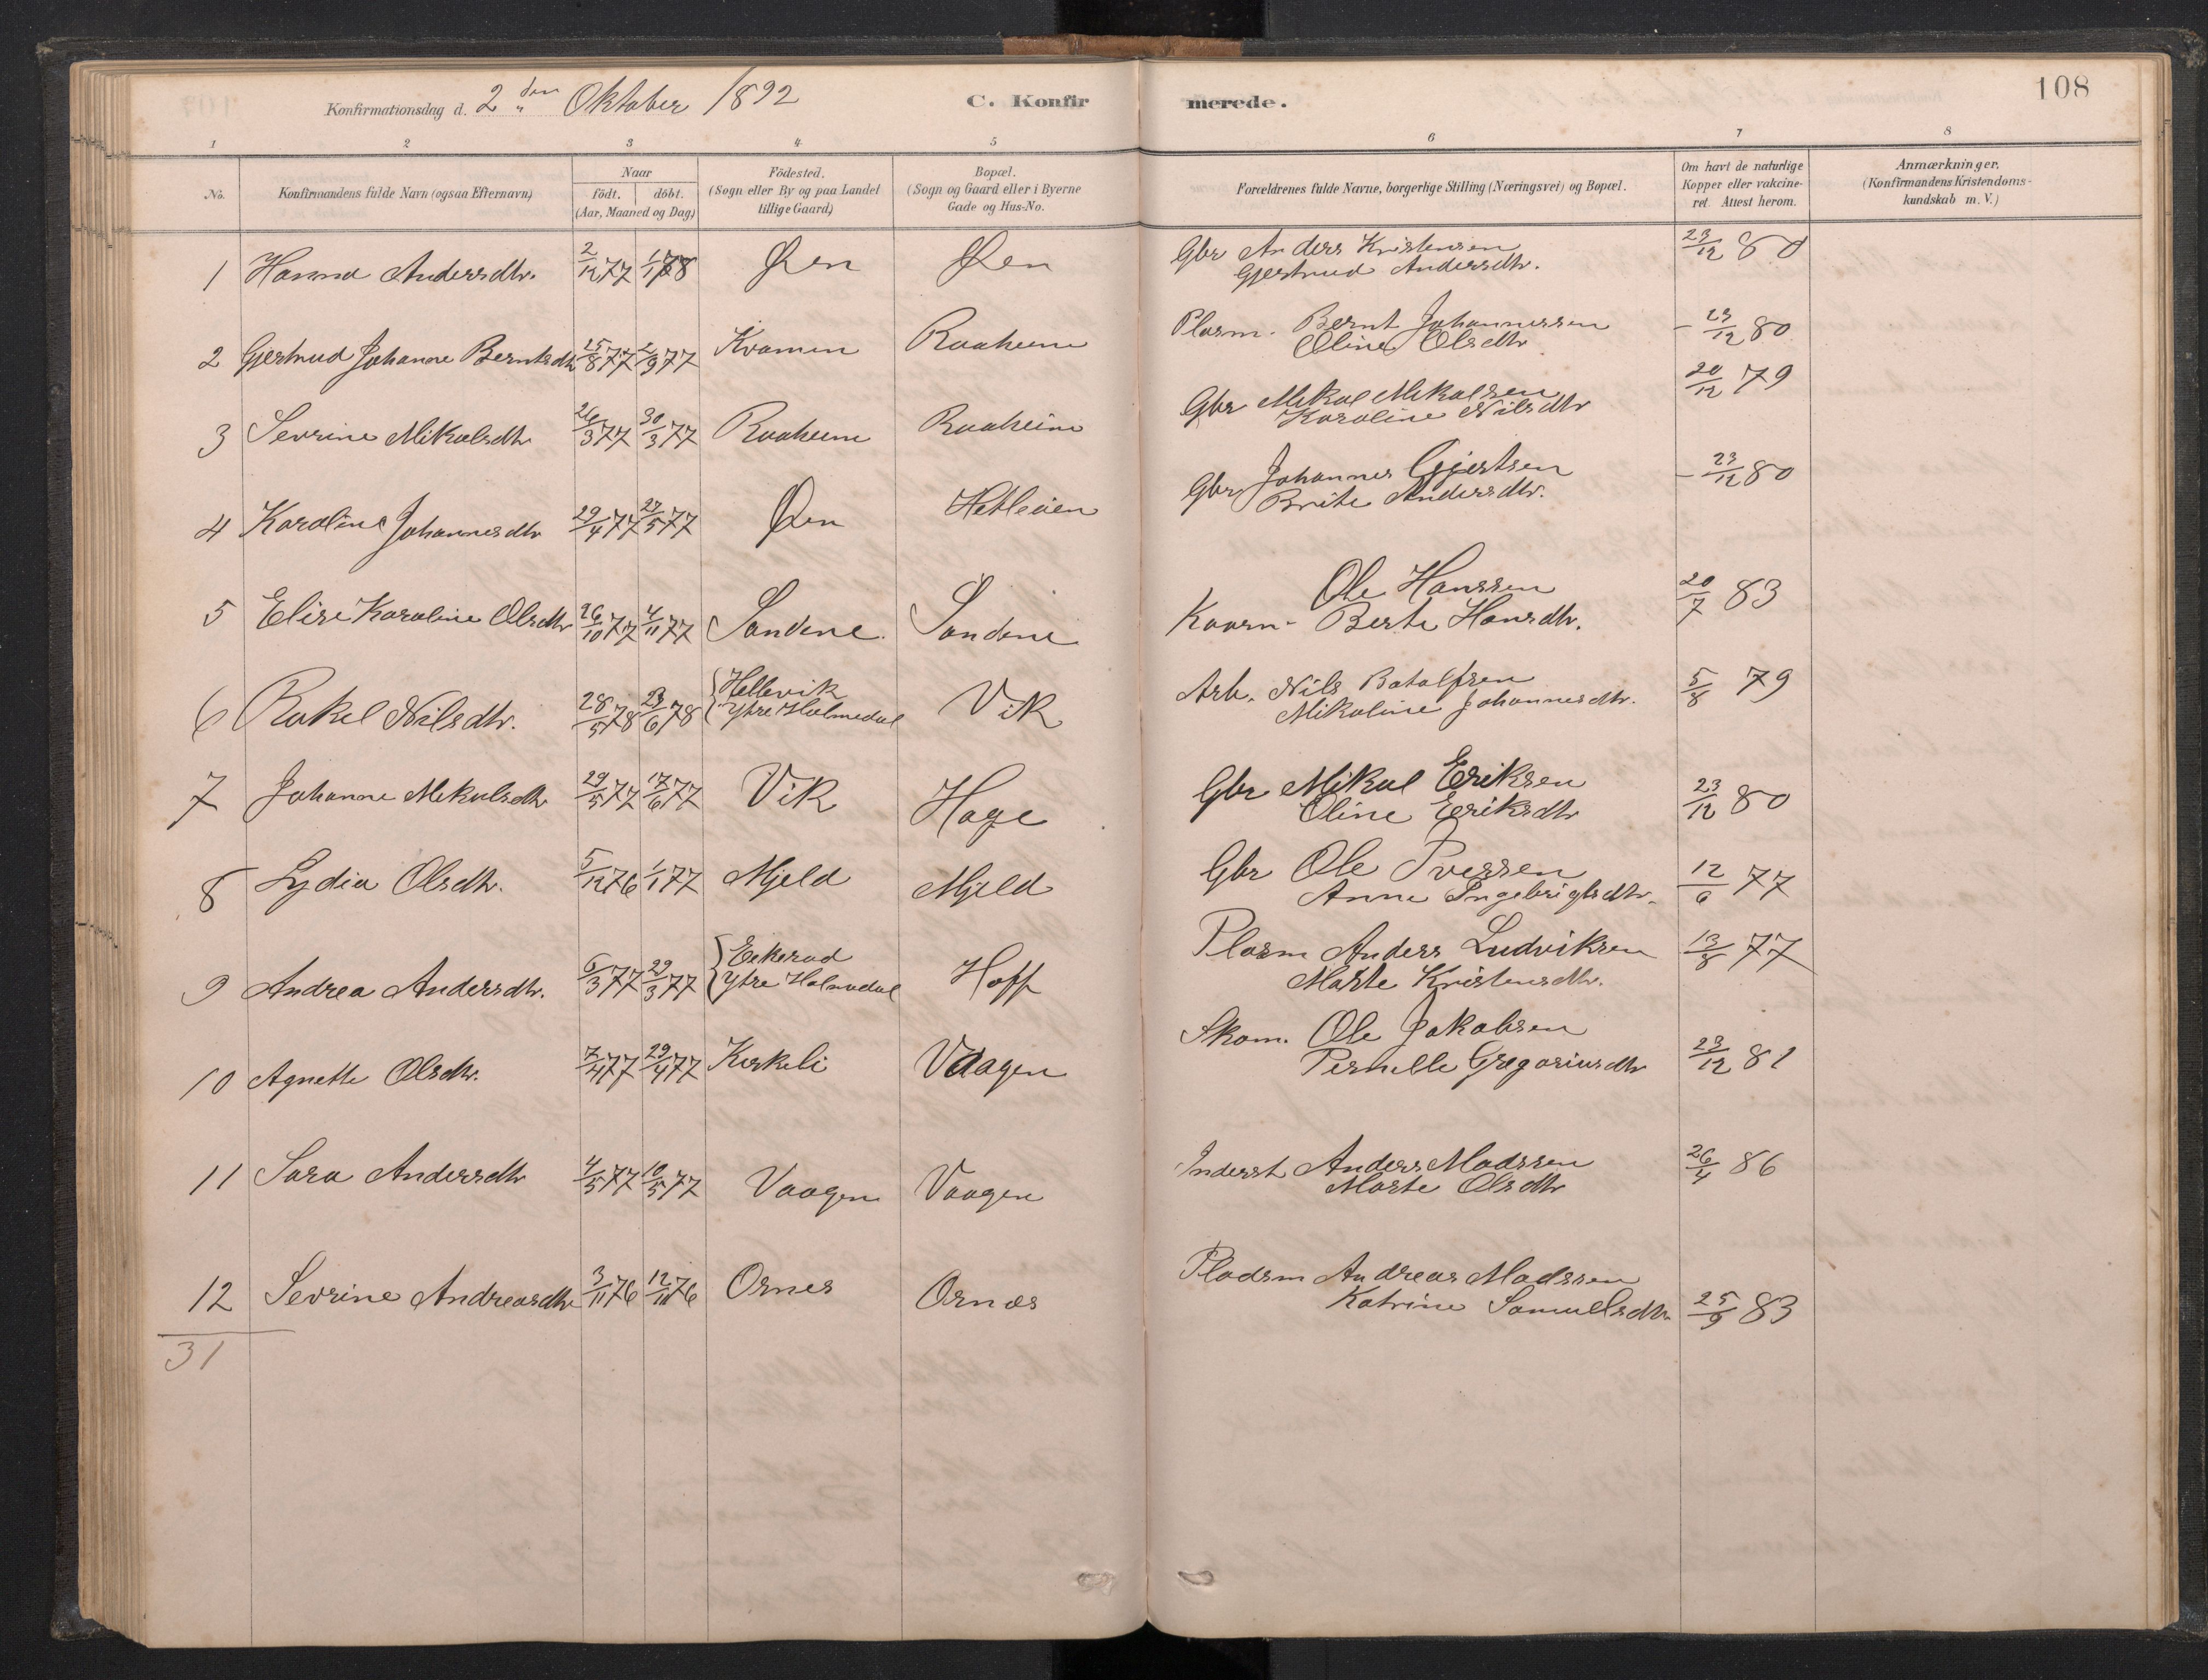 108
Konfirmationsdag d. 2 den Oktober 1892 C. Konfirmerede.
1 2 3 4 5 6 7 8
No. Konfirmandens fulde Navn (ogsaa Efternavn) Naar födt. döbt. (Aar, Maaned og Dag) Födested. (Sogn eller By og paa Landet tillige Gaard) Bopæl. (Sogn og Gaard eller i Byerne Gade og Hus-No. Forældrenes fulde Navne, borgerlige Stilling (Næringsvei) og Bopæl. Om havt de naturlige Kopper eller vakcineret. Attest herom. Anmærkninger. (Konfirmandens Kristendomskundskab m. V.)
1 Hanna Andersdtr. 2/12 77 1/1 78 Øen Øen Gbr Anders Kristensen 23/12 80
Gjertrud Andersdtr.
2 Gjertrud Johanne Berntsdtr 25/8 77 2/9 77 Kvamen Raaheim Plasm. Bernt Johannessen - 23/12 80
Oline Olsdtr
3 Sevrine Mikalsdtr 26/3 77 30/3 77 Raaheim Raaheim Gbr Mikal Mikalsen 20/12 79
Karoline Nilsdtr
4 Karoline Johannesdtr 29/4 77 27/5 77 Øen Hetleøen Gbr Johannes Gjertsen - 23/12 80
Brite Andersdtr.
5 Elise Karoline Olsdtr 26/10 77 4/11 77 Sandene. Sandene Ole Hanssen 20/7 83
Kaarn- Berte Hansdtr.
6 Rakel Nilsdtr. 28/5 78 23/6 78 { Hellevik Ytre Holmedal Vik Arb. Nils Batalfsen 5/8 79
Mikaline Johannesdtr.
7 Johanne Mikalsdtr 29/5 77 17/6 77 Vik Hage Gbr Mikal Eriksen 23/12 80
Oline Eriksdtr
8 Lydia Olsdtr. 5/12 76 1/1 77 Mjeld Mjeld Gbr Ole Iversen 12/6 77
Anne Ingebrigtsdtr.
9 Andrea Andersdtr. 6/3 77 29/3 77 { Eikerad Ytre Holmedal Hoff Plasm Anders Ludviksen 13/8 77
Marte Kristensdtr.
10 Agnette Olsdtr. 7/4 77 29/4 77 Kirkeli Vaagen Skom. Ole Jakobsen 23/12 81
Pernelle Gregoriusdtr
11 Sara Andersdtr 4/5 77 10/5 77 Vaagen Vaagen Inderst Anders Madssen 26/4 86
Marte Olsdtr
12 Sevrine Andreasdtr 3/11 76 12/11 76 Ornes Ornæs Pladsm Andreas Madssen
Katrine Samuelsdtr. 25/9 83
31